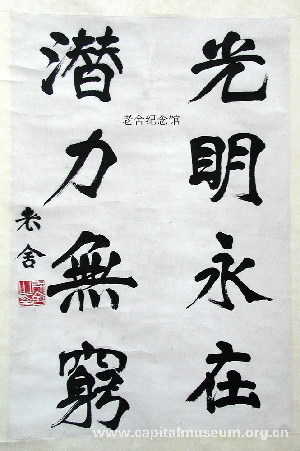 光明永在
潜力無窮
老舍
老舍纪念馆
www.capitalmuseum.org.cn